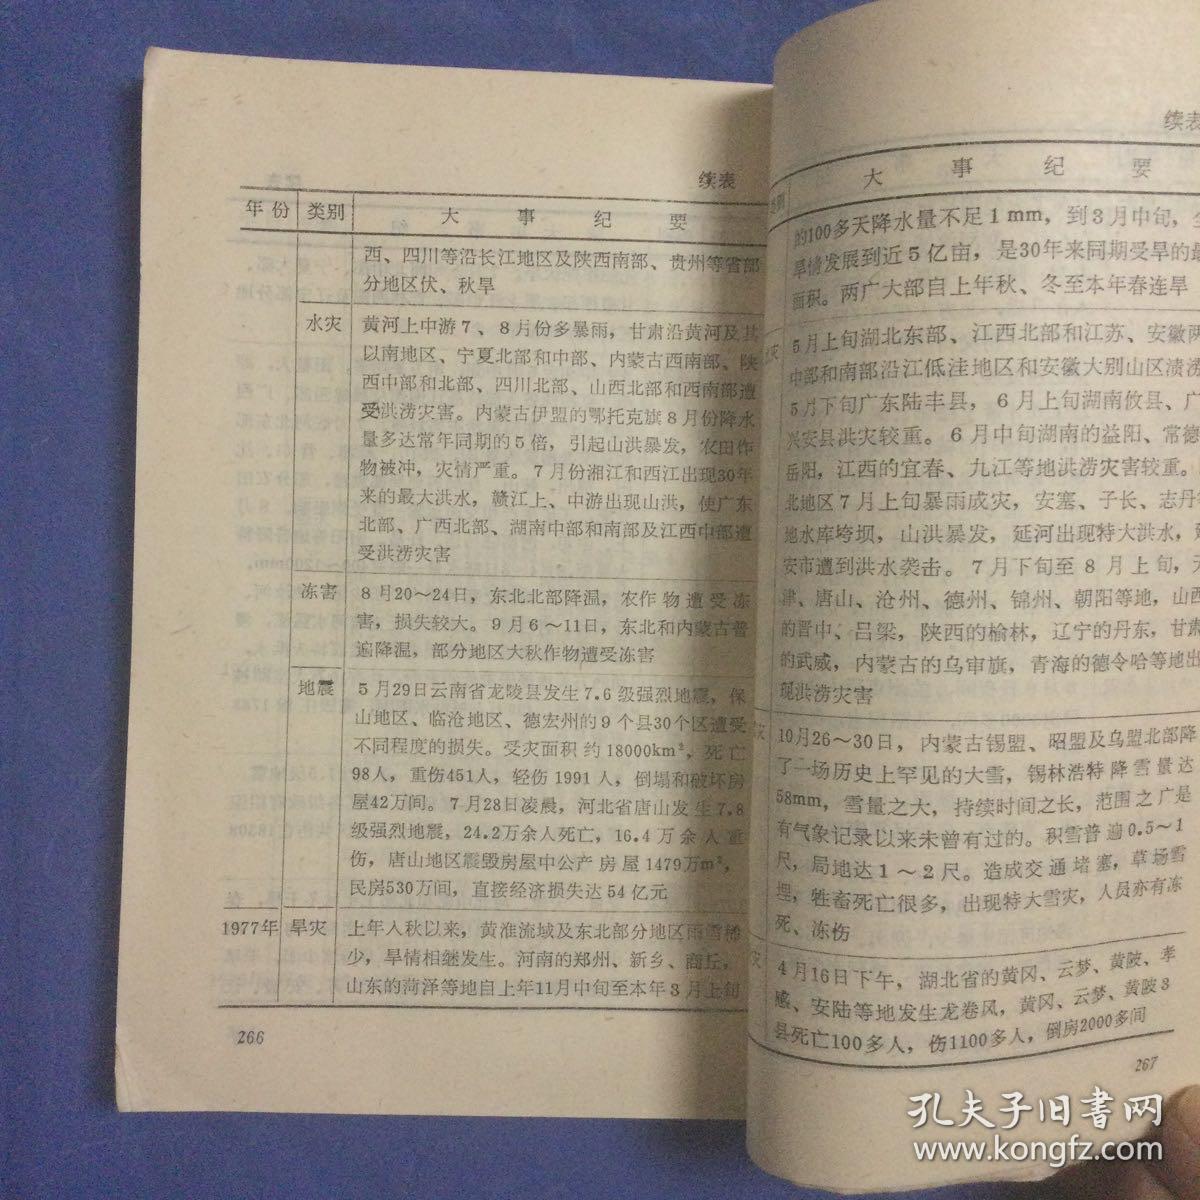 续表
年份 类别 大事纪要
西、四川等沿长江地区及陕西南部、贵州等省部
分地区伏、秋旱
水灾 黄河上中游7、8月份多暴雨，甘肃沿黄河及其
以南地区、宁夏北部和中部、内蒙古西南部、陕
西中部和北部、四川北部、山西北部和西南部遭
受洪涝灾害。内蒙古伊盟的鄂托克旗8月份降水
量多达常年同期的5倍，引起山洪暴发，农田作
物被冲，灾情严重。7月份湘江和西江出现30年
来的最大洪水，赣江上、中游出现山洪，使广东
北部、广西北部、湖南中部和南部及江西中部遭
受洪涝灾害
冻害 8月20～24日，东北北部降温，农作物遭受冻
害，损失较大。9月6～11日，东北和内蒙古普
遍降温，部分地区大秋作物遭受冻害
地震 5月29日云南省龙陵县发生7.6级强烈地震，保
山地区、临沧地区、德宏州的9个县30个区遭受
不同程度的损失。受灾面积约18000km²，死亡
98人，重伤451人，轻伤1991人，倒塌和破坏房
屋42万间。7月28日凌晨，河北省唐山发生7.8
级强烈地震，24.2万余人死亡，16.4万余人重
伤，唐山地区震毁房屋中公产房屋1479万m²，
民房530万间，直接经济损失达54亿元
1977年 旱灾 上年入秋以来，黄淮流域及东北部分地区雨雪稀
少，旱情相继发生。河南的郑州、新乡、商丘，
山东的菏泽等地自上年11月中旬至本年3月上旬
266
续表
类别 大事纪要
的100多天降水量不足1mm，到3月中旬，
旱情发展到近5亿亩，是30年来同期受旱的最
面积。两广大部自上年秋、冬至本年春连旱
灾 5月上旬湖北东部、江西北部和江苏、安徽两
中部和南部沿江低洼地区和安徽大别山区渍涝
5月下旬广东陆丰县，6月上旬湖南攸县、广
兴安县洪灾较重。6月中旬湖南的益阳、常德
岳阳，江西的宜春、九江等地洪涝灾害较重。
北地区7月上旬暴雨成灾，安塞、子长、志丹
地水库垮坝，山洪暴发，延河出现特大洪水，
安市遭到洪水袭击。7月下旬至8月上旬，
津、唐山、沧州、德州、锦州、朝阳等地，山西
的晋中、吕梁，陕西的榆林，辽宁的丹东，甘肃
的武威，内蒙古的乌审旗，青海的德令哈等地出
现洪涝灾害
灾 10月26～30日，内蒙古锡盟、昭盟及乌盟北部降
了一场历史上罕见的大雪，锡林浩特降雪量达
58mm，雪量之大，持续时间之长，范围之广是
有气象记录以来未曾有过的。积雪普遍0.5～1
尺，局地达1～2尺。造成交通堵塞，草场雪
埋，牲畜死亡很多，出现特大雪灾，人员亦有冻
死、冻伤
灾 4月16日下午，湖北省的黄冈、云梦、黄陂、孝
感、安陆等地发生龙卷风，黄冈、云梦、黄陂3
县死亡100多人，伤1100多人，倒房2000多间
267
孔夫子旧书网
www.kongfz.com